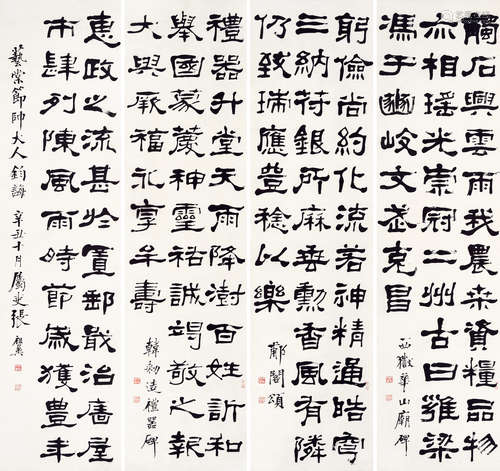 觸石興雲雨我農桑資糧品物
亦相瑤光崇冠二州古曰雍梁
馮于豳岐文武克昌
西嶽華山廟碑
躬儉尚約化流若神精通晧穹
三納符銀所厤垂勳香風有隣
仍致瑞應豊稔以樂
郙閣頌
禮器升堂天雨降澍百姓訢和
舉國蒙慶神靈祐誠竭敬之報
大與厥福永享牟壽
韓勑造禮器碑
惠政之流甚於置郵戢治廧屋
市肆列陳風雨時節歲獲豊年
藝棠節帥大人鈞誨 辛丑十月屬吏張